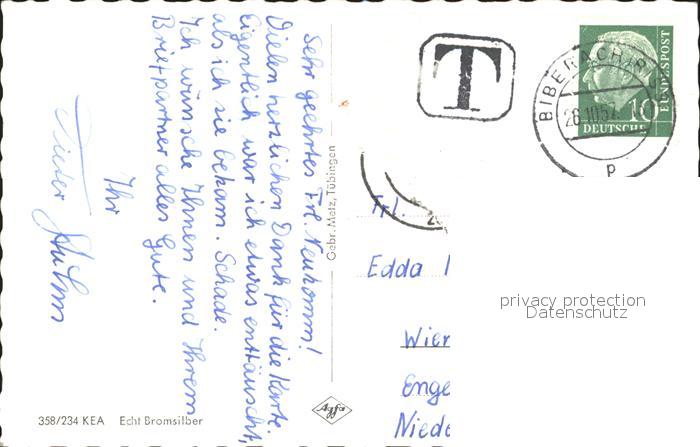 Sehr geehrtes Frl. Neukomm!
Vielen herzlichen Dank für die Karte.
Eigentlich war ich etwas enttäuscht,
als ich sie bekam. Schade.
Ich wünsche Ihnen und Ihrem
Briefpartner alles Gute.
Ihr
Dieter
358/234 KEA Echt Bromsilber
Gebr. Metz, Tübingen
Agfa
T
BIBERACH
26.10.57
p
10
DEUTSCHE
BUNDESPOST
Frl.
Edda
Wier
Enge
Niede
privacy protection
Datenschutz